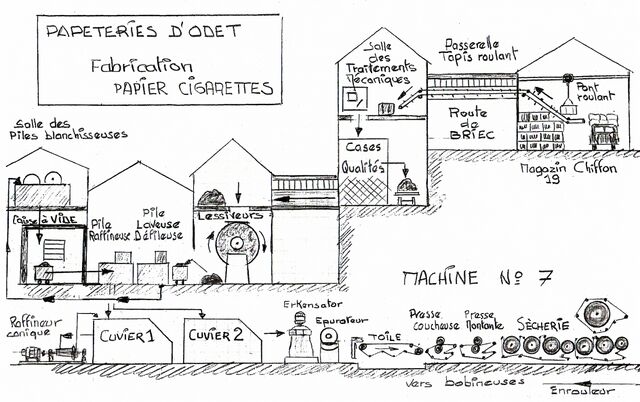 PAPETERIES D'ODET
Fabrication
PAPIER CIGARETTES
Salle
des
Traitements
Mécaniques
Passerelle
Tapis roulant
Pont
roulant
Route
de
BRIEC
Cases
Qualités
Magazin Chiffon
19
Salle des
Piles blanchisseuses
Caisse à VIDE
Pile
Raffineuse
Pile
Laveuse
Défileuse
Lessiveurs
MACHINE No 7
Raffineur
conique
CUVIER 1
CUVIER 2
Erkensator
Epurateur
TOILE
Presse
coucheuse
Presse
Montante
SÈCHERIE
vers bobineuses
Enrouleur